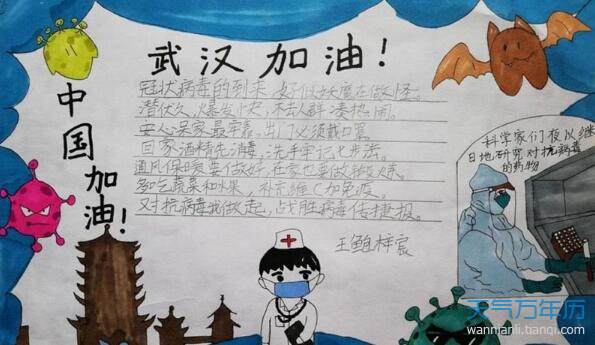 武汉加油!
中国加油!
冠状病毒的到来,好似妖魔在做怪。
潜伏久,爆发快,不去人群凑热闹。
安心呆家最牢靠,出门必须戴口罩。
回家酒精先消毒,洗手牢记七步法。
通风保暖要做好,在家也要做
多吃蔬菜和水果,补充维C加免疫。
对抗病毒我做起,战胜病毒传捷报。
王鲍梓宸
科学家们夜以继
日地研究对抗病毒
的药物
天气万年历
wannianli.tianqi.com